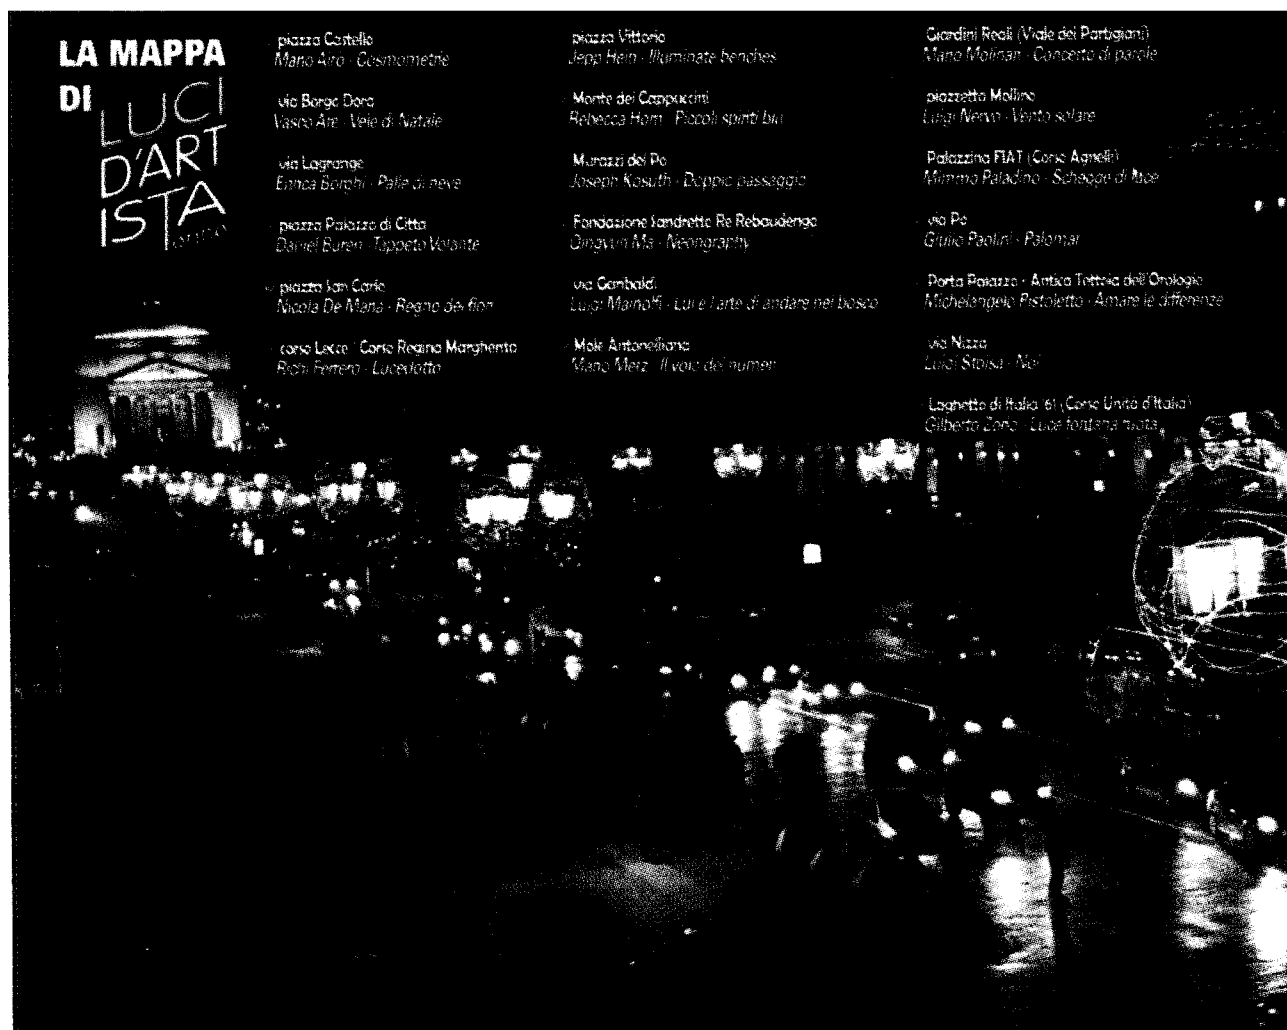 LA MAPPA
DI LUCI
D'ART
ISTA
TORINO
piazza Castello
Mario Airò - Cosmometrie
via Borgo Dora
Vasco Are - Vele di Natale
via Lagrange
Enrica Borghi - Palle di neve
piazza Palazzo di Città
Daniel Buren - Tappeto Volante
piazza San Carlo
Nicola De Maria - Regno dei fiori
corso Lecce / Corso Regina Margherita
Richi Ferrero - Lucedotto
piazza Vittorio
Jepp Hein - Illuminate benches
Monte dei Cappuccini
Rebecca Horn - Piccoli spiriti blu
Murazzi del Po
Joseph Kosuth - Doppio passaggio
Fondazione Sandretto Re Rebaudengo
Qingyun Ma - Neongraphy
via Garibaldi
Luigi Mainolfi - Lui e l'arte di andare nel bosco
Mole Antonelliana
Mario Merz - Il volo dei numeri
Giardini Reali (Viale dei Partigiani)
Mario Molinari - Concerto di parole
piazzetta Mollino
Luigi Nervo - Vento solare
Palazzina FIAT (Corso Agnelli)
Mimmo Paladino - Schegge di luce
via Po
Giulio Paolini - Palomar
Porta Palazzo - Antica Tettoia dell'Orologio
Michelangelo Pistoletto - Amare le differenze
via Nizza
Luigi Stoisa - Noi
Laghetto di Italia '61 (Corso Unità d'Italia)
Gilberto Zorio - Luce fontana ruota